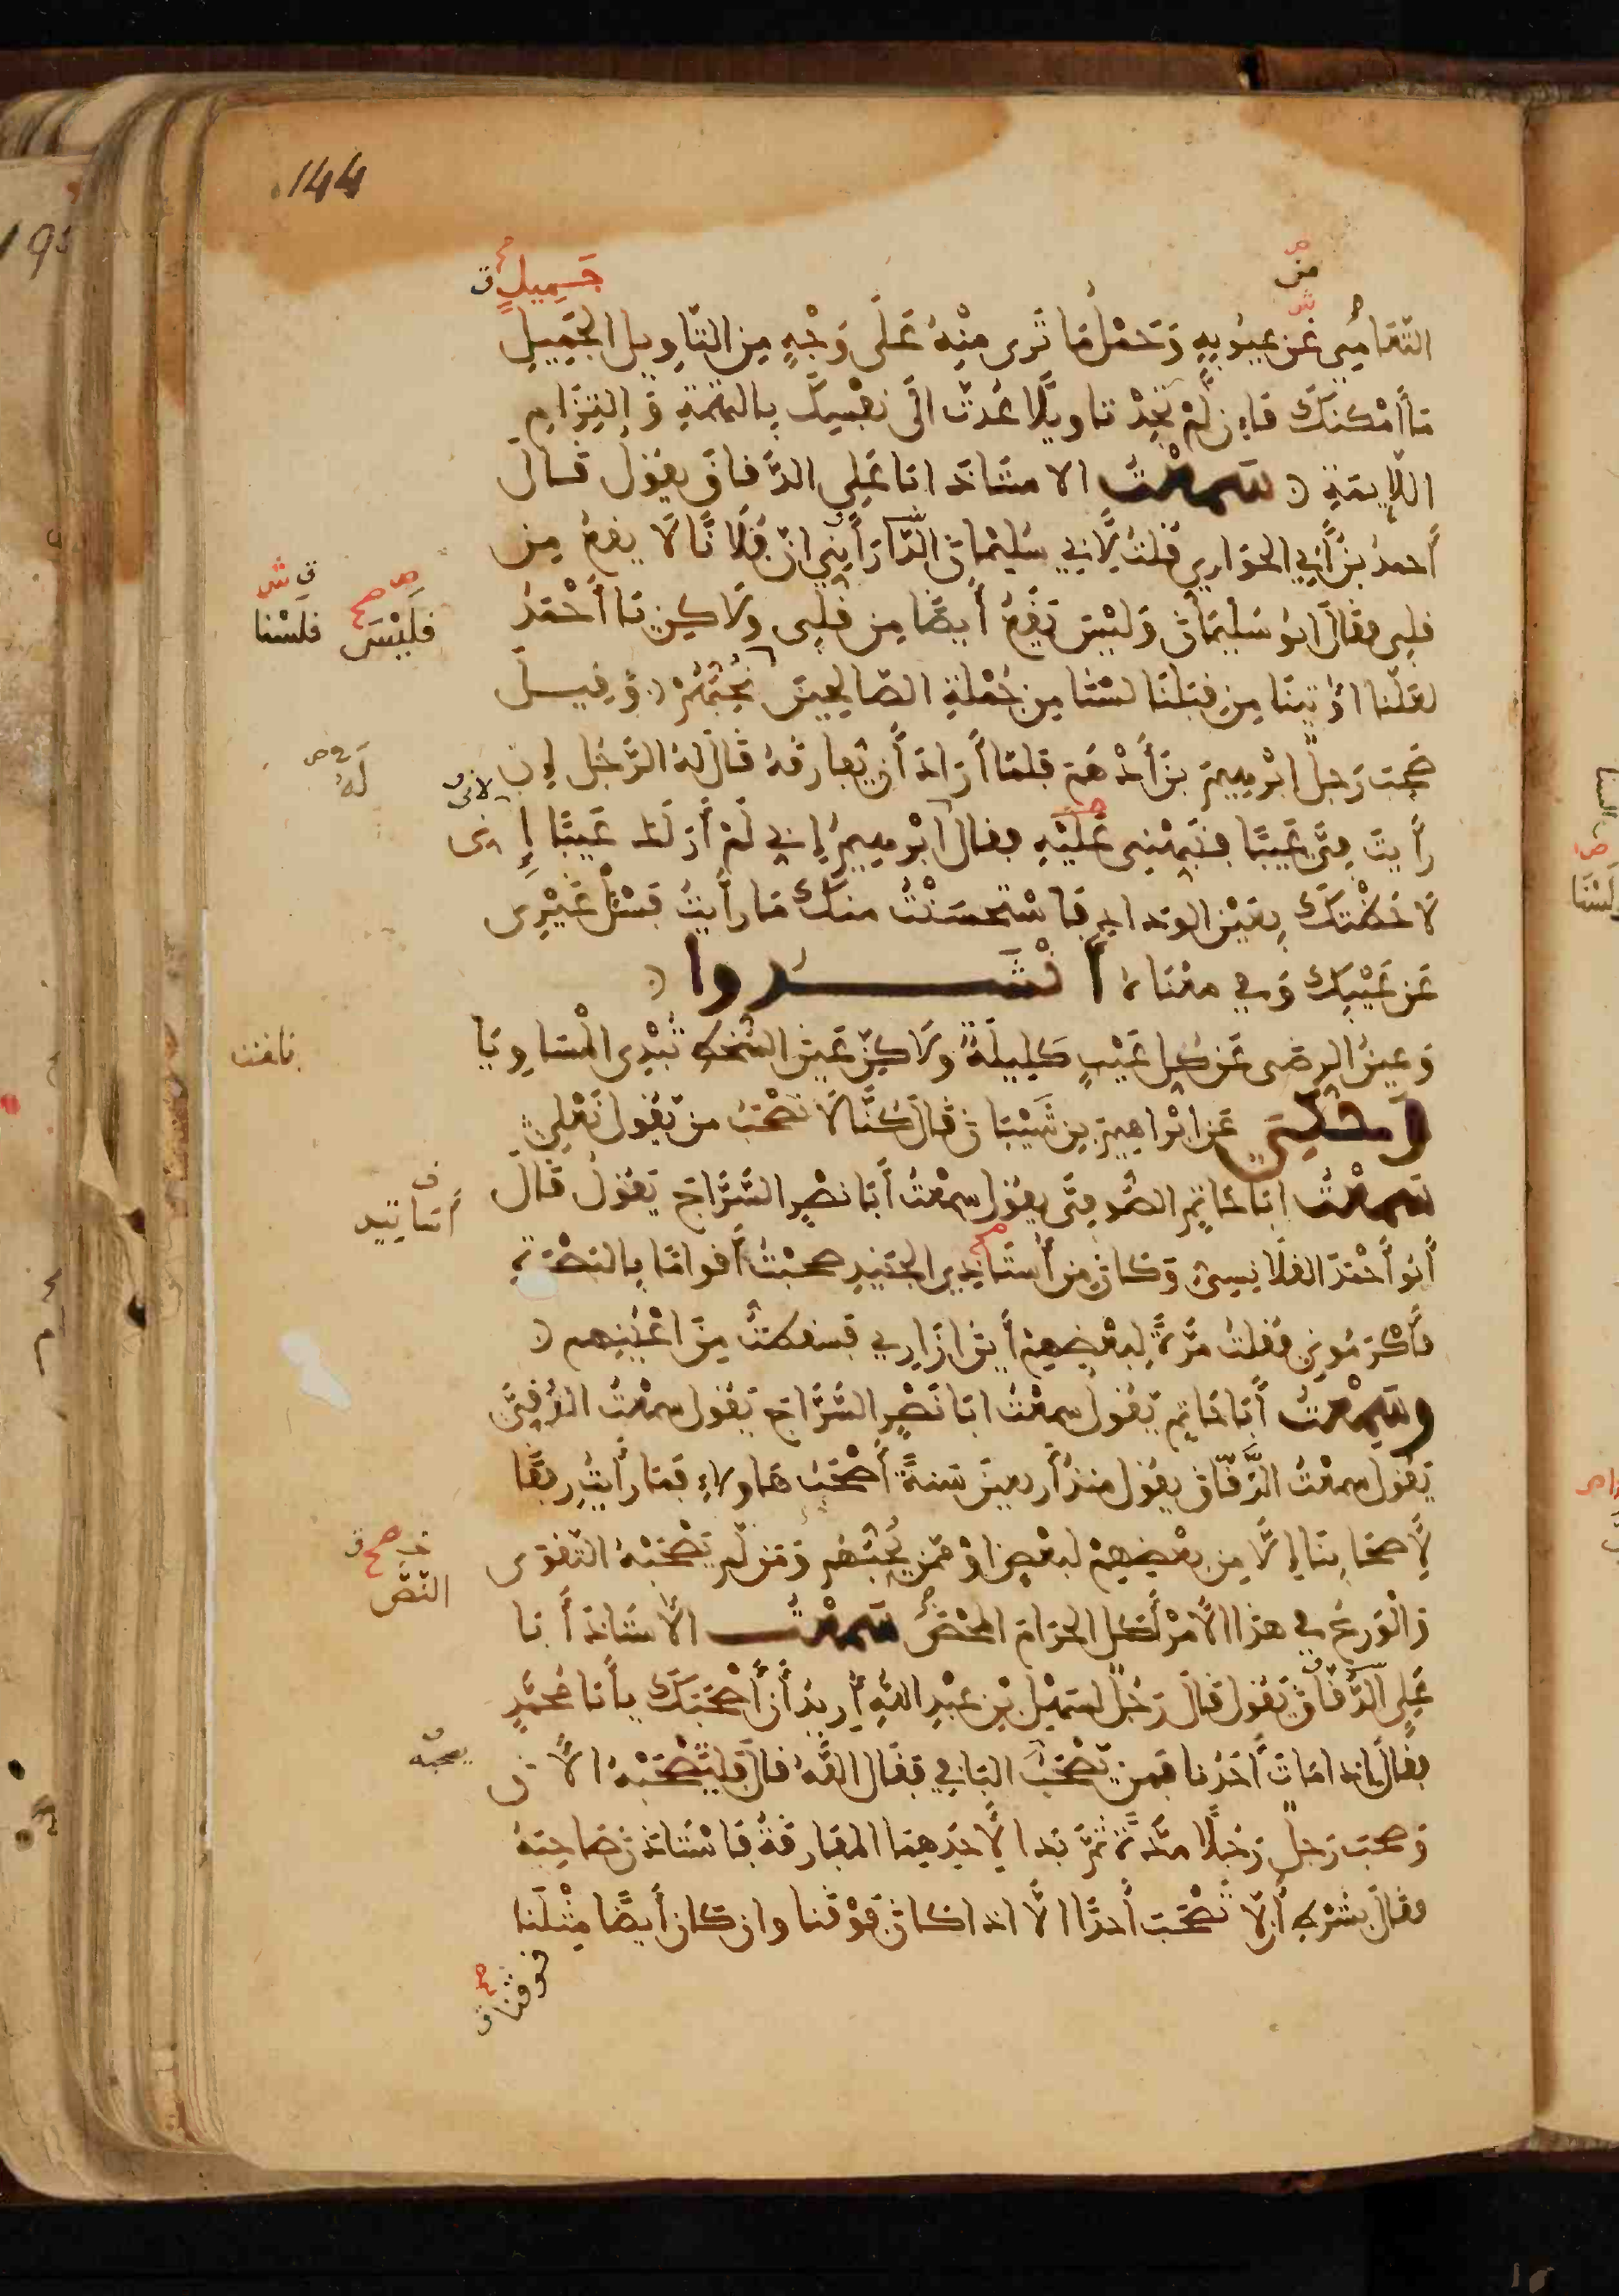 144
من
جميل
التعامي عن عيوبه وتحمل ما ترى منه على وجه من التاويل الجميل
ما أمكنك فإن لم تجد تاويلا عدت الى نفسك بالتهمة والتزام
اللايمة سمعت الاستاذ ابا علي الدقاق يقول قال
أحمد بن أبي الحواري قلت لأبي سليمان الداراني ان فلانا لا يقع من
قلبي فقال ابو سليمان وليس يقع أيضا من قلبي ولاكن يا أحمد
فليس
فلسنا
لعلنا اوتينا من قبلنا لسنا من جملة الصالحين نحبهم وقيل
صحب رجل ابرهيم بن أدهم فلما أراد أن يفارقه قال له الرجل إن
له
رأيت في عيبا فنبهني عليه فقال ابرهيم إني لم أر لك عيبا إني
لاني
لاحظتك بعين الوداد فاستحسنت منك ما رأيت فسل غيري
عن عيبك وفي معناه أنشدوا
وعين الرضى عن كل عيب كليلة ولاكن عين السخط تبدي المساويا
وحكي عن ابراهيم بن شيبان قال كنا لا نصحب من يقول نعلي
سمعت ابا حاتم الصوفي يقول سمعت أبا نصر السراج يقول قال
أساتيد
أبو أحمد القلانسي وكان من أستاذي الجنيد صحبت أقواما بالبصرة
فأكرموني فقلت مرة لبعضهم أين ازاري فسقطت من اعينهم
وسمعت أبا حاتم يقول سمعت ابا نصر السراج يقول سمعت الدقي
يقول سمعت الزقاق يقول منذ أربعين سنة أصحب هاولاء فما رأيت رفقا
لأصحابنا إلا من بعضهم لبعض او ممن يحبهم ومن لم يصحبه التقوى
النص
والورع في هذا الامر أكل الحرام المحض سمعت الأستاذ أبا
علي الدقاق يقول قال رجل لسهل بن عبد الله أريد أن أصحبك يا أبا محمد
فقال اذا مات أحدنا فمن يصحب الباقي فقال الله قال فليصحبه الآن
يصحبه
وصحب رجل رجلا مدة ثم بدا لأحدهما المفارقة فاستاذن صاحبه
فقال بشرط ألا تصحب أحدا الا اذا كان فوقنا وان كان أيضا مثلنا
فوقنا